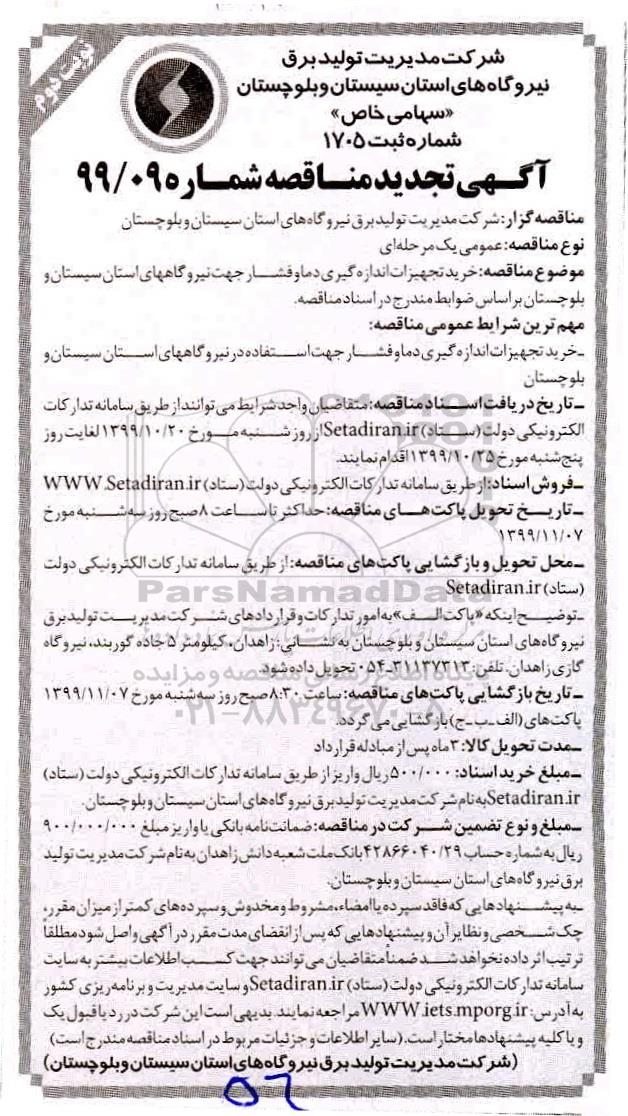 نوبت دوم
شرکت مدیریت تولید برق
نیروگاه‌های استان سیستان و بلوچستان
«سهامی خاص»
شماره ثبت ۱۷۰۵
آگهی تجدید مناقصه شماره ۹۹/۰۹
مناقصه گزار: شرکت مدیریت تولید برق نیروگاه‌های استان سیستان و بلوچستان
نوع مناقصه: عمومی یک مرحله‌ای
موضوع مناقصه: خرید تجهیزات اندازه گیری دما و فشار جهت نیروگاههای استان سیستان و
بلوچستان بر اساس ضوابط مندرج در اسناد مناقصه.
مهم ترین شرایط عمومی مناقصه:
ـ خرید تجهیزات اندازه گیری دما و فشار جهت استفاده در نیروگاههای استان سیستان و
بلوچستان
ـ تاریخ دریافت اسناد مناقصه: متقاضیان واجد شرایط می توانند از طریق سامانه تدارکات
الکترونیکی دولت (ستاد) Setadiran.ir از روز شنبه مورخ ۱۳۹۹/۱۰/۲۰ لغایت روز
پنج شنبه مورخ ۱۳۹۹/۱۰/۲۵ اقدام نمایند.
ـ فروش اسناد: از طریق سامانه تدارکات الکترونیکی دولت (ستاد) WWW.Setadiran.ir
ـ تاریخ تحویل پاکت‌های مناقصه: حداکثر تا ساعت ۸ صبح روز سه شنبه مورخ
۱۳۹۹/۱۱/۰۷
ـ محل تحویل و بازگشایی پاکت‌های مناقصه: از طریق سامانه تدارکات الکترونیکی دولت
(ستاد) Setadiran.ir
ـ توضیح اینکه «پاکت الف» به امور تدارکات و قراردادهای شرکت مدیریت تولید برق
نیروگاه‌های استان سیستان و بلوچستان به نشانی: زاهدان، کیلومتر ۵ جاده گوربند، نیروگاه
گازی زاهدان. تلفن: ۳۱۱۳۷۳۱۳-۰۵۴ تحویل داده شود
ـ تاریخ بازگشایی پاکت‌های مناقصه: ساعت ۸:۳۰ صبح روز سه شنبه مورخ ۱۳۹۹/۱۱/۰۷
پاکت‌های (الف-ب-ج) بازگشایی می گردد.
ـ مدت تحویل کالا: ۳ ماه پس از مبادله قرارداد
ـ مبلغ خرید اسناد: ۵۰۰/۰۰۰ ریال واریز از طریق سامانه تدارکات الکترونیکی دولت (ستاد)
Setadiran.ir به نام شرکت مدیریت تولید برق نیروگاه‌های استان سیستان و بلوچستان.
ـ مبلغ و نوع تضمین شرکت در مناقصه: ضمانت نامه بانکی یا واریز مبلغ ۹۰۰/۰۰۰/۰۰۰
ریال به شماره حساب ۴۲۸۶۶۰۴۰/۲۹ بانک ملت شعبه دانش زاهدان به نام شرکت مدیریت تولید
برق نیروگاه‌های استان سیستان و بلوچستان.
ـ به پیشنهادهایی که فاقد سپرده یا امضاء، مشروط و مخدوش و سپرده‌های کمتر از میزان مقرر،
چک شخصی و نظایر آن و پیشنهادهایی که پس از انقضای مدت مقرر در آگهی واصل شود مطلقا
ترتیب اثر داده نخواهد شد ضمناً متقاضیان می توانند جهت کسب اطلاعات بیشتر به سایت
سامانه تدارکات الکترونیکی دولت (ستاد) Setadiran.ir و سایت مدیریت و برنامه ریزی کشور
به آدرس: WWW.iets.mporg.ir مراجعه نمایند. بدیهی است این شرکت در رد یا قبول یک
و یا کلیه پیشنهادها مختار است. (سایر اطلاعات و جزئیات مربوط در اسناد مناقصه مندرج است)
(شرکت مدیریت تولید برق نیروگاه‌های استان سیستان و بلوچستان)
ParsNamadData
پایگاه اطلاع رسانی مناقصه و مزایده
۰۲۱-۸۸۳۴۹۶۷۰-۸